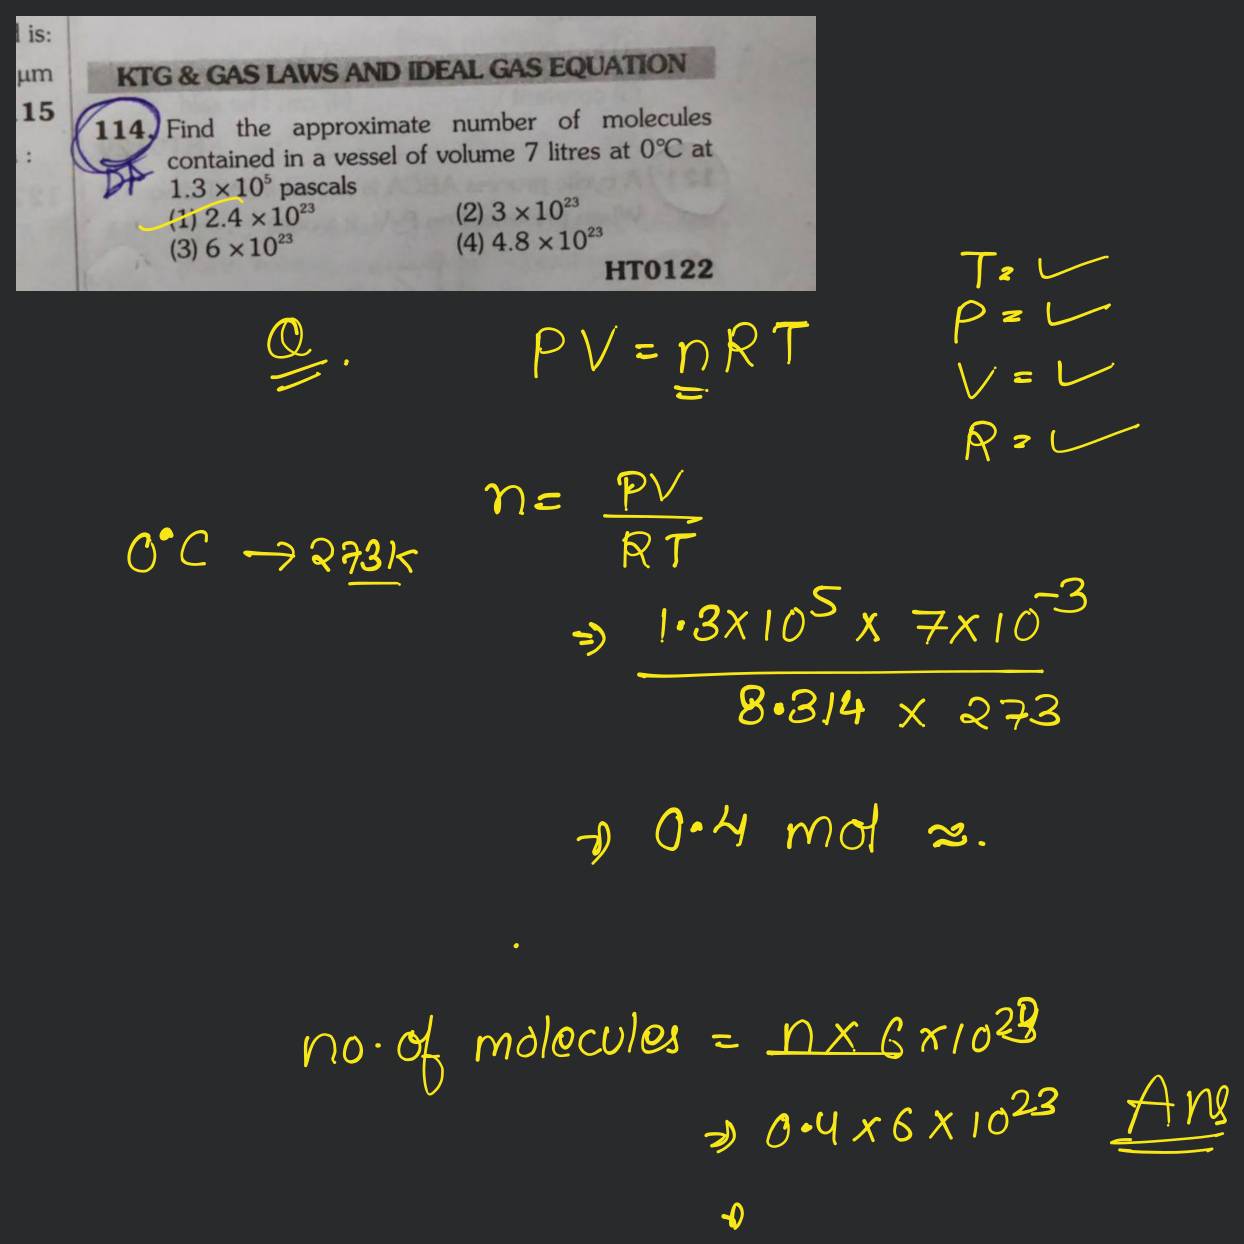 l is:
μm
15
:
KTG & GAS LAWS AND IDEAL GAS EQUATION
114. Find the approximate number of molecules
contained in a vessel of volume 7 litres at 0°C at
1.3 ×10⁵ pascals
(1) 2.4 ×10²³ (2) 3 ×10²³
(3) 6 ×10²³ (4) 4.8 ×10²³
HT0122
T= ✓
P = ✓
V = ✓
R = ✓
Q. PV = nRT
n = PV/RT
0°C → 273K
⇒ 1.3×10⁵ × 7×10⁻³
8.314 × 273
⇒ 0.4 mol ≈.
no. of molecules = n × 6 ×10²³
⇒ 0.4 × 6 × 10²³ Ans
⇒